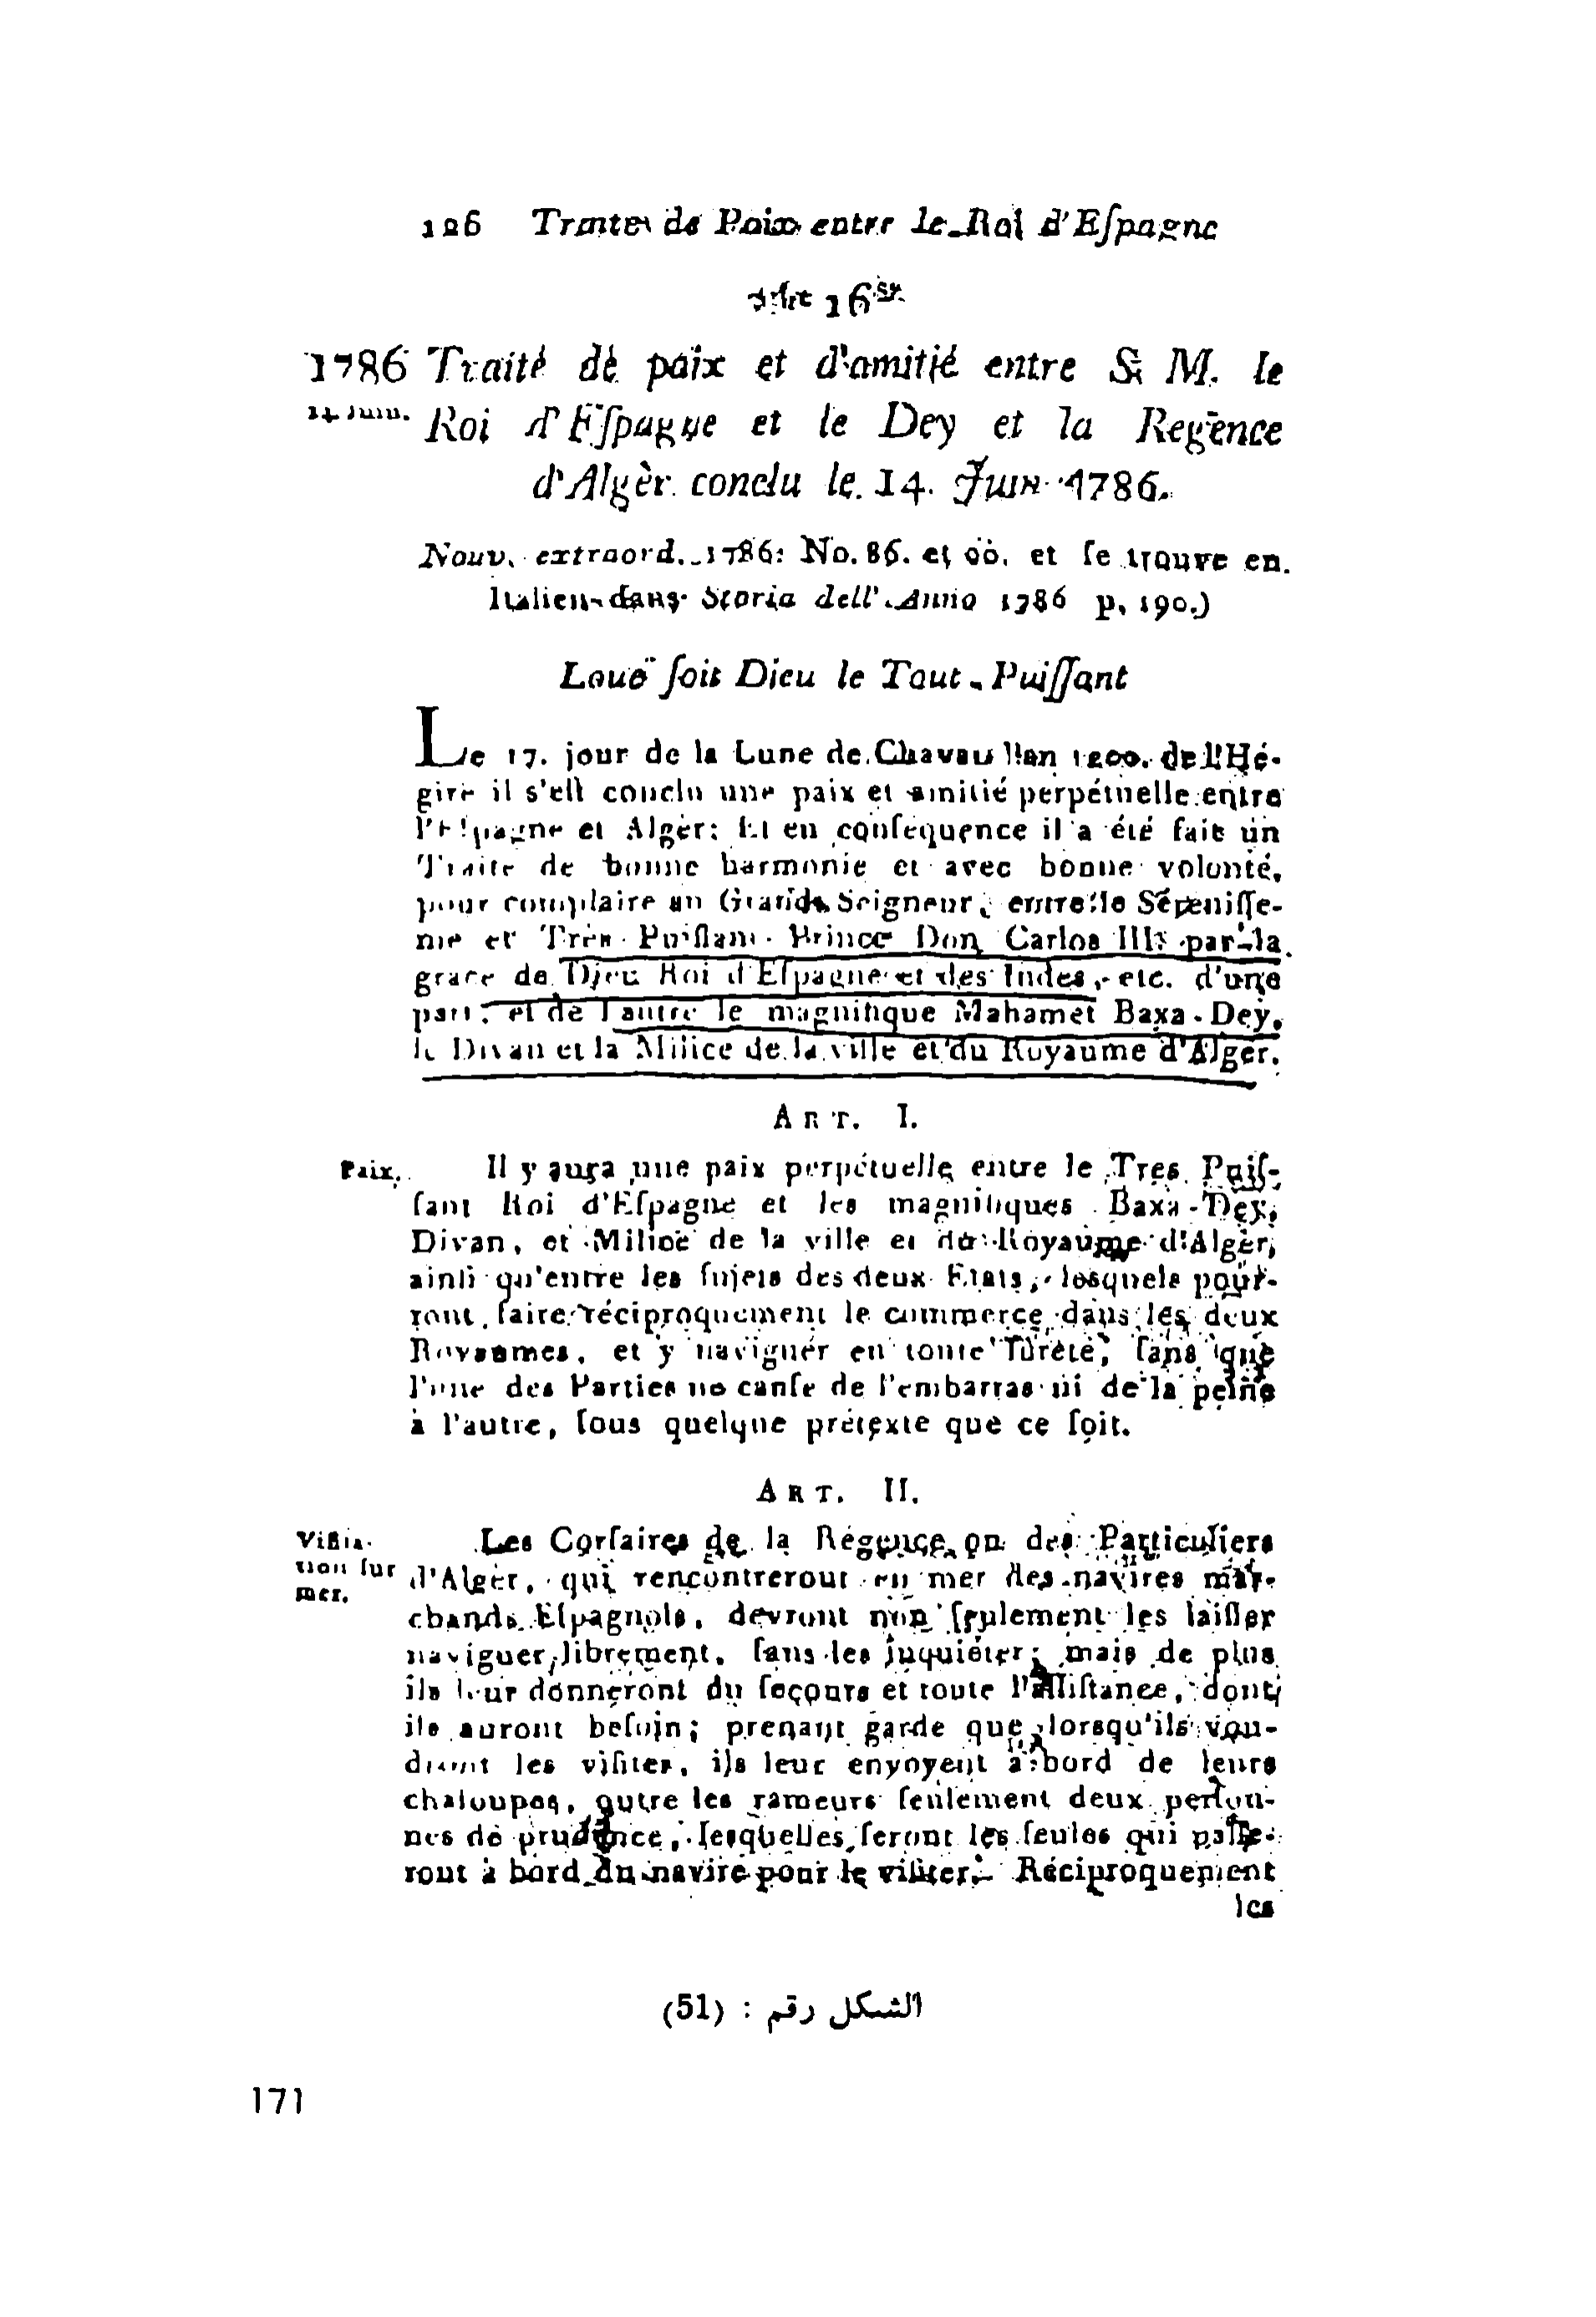 126 Traité de Paix entre le Roi d'Eſpagne
16
1786 Traité de paix et d'amitié entre S. M. le
14 Juin. Roi d'Eſpagne et le Dey et la Regence
d'Algèr. conclu le. 14. Juin 1786.
Nouv. extraord. 1786: No. 86. et et ſe trouve en
Italien dans Storia dell' Anno 1786 p. 190.)
Loué ſoit Dieu le Tout-Puiſſant
Le 17. jour de la Lune de Chavau l'an 1200. de l'Hé-
gire il s'eſt conclu une paix et amitié perpétuelle entre
l'Eſpagne et Alger: Et en conſequence il a été fait un
Traité de bonne harmonie et avec bonne volonté,
pour complaire au Grand Seigneur, entre le Séréniſſe-
me et Très-Puiſſant Prince Don Carlos III. par la
grace de Dieu Roi d'Eſpagne et des Indes, etc. d'une
part: et de l'autre le magnifique Mahamet Baxa-Dey,
le Divan et la Milice de la ville et du Royaume d'Alger.
ART. I.
Paix. Il y aura une paix perpétuelle entre le Tres Puiſ-
ſant Roi d'Eſpagne et les magnifiques Baxa-Dey,
Divan, et Milice de la ville et du Royaume d'Algèr,
ainſi qu'entre les ſujets des deux Etats, lesquels pour-
ront faire réciproquement le commerce dans les deux
Royaumes, et y naviguér en toute ſûreté, ſans que
l'une des Parties ne cauſe de l'embarras ni de la peine
à l'autre, ſous quelque prétexte que ce ſoit.
ART. II.
Viſita- Les Corſaires de la Régence ou des Particuliers
tion ſur d'Algèr, qui rencontreront en mer des navires mar-
mer.
chands Eſpagnols, devront non ſeulement les laiſſer
naviguer librement, ſans les inquiéter; mais de plus
ils leur donneront du ſecours et toute l'aſſiſtance, dont
ils auront beſoin; prenant garde que lorsqu'ils vou-
dront les viſiter, ils leur envoyent à bord de leurs
chaloupes, outre les rameurs ſeulement deux perſon-
nes de prudence, lesquelles ſeront les ſeules qui paſſe-
ront à bord du navire pour le viſiter. Réciproquement
les
الشكل رقم : (51)
171